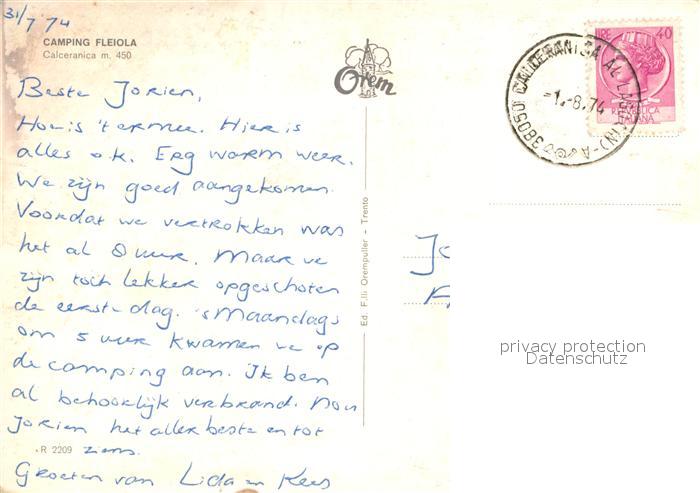 31/7 74
CAMPING FLEIOLA
Calceranica m. 450
Orem
Beste Jorien,
Hoe is 't ermee. Hier is
alles o.k. Erg warm weer.
We zijn goed aangekomen.
Voordat we vertrokken was
het al 8 uur. Maar we
zijn toch lekker opgeschoten
de eerste dag. 's Maandags
om 5 uur kwamen we op
de camping aan. Ik ben
al behoorlijk verbrand. Nou
Jorien het allerbeste en tot
ziens.
Groeten van Lida en Kees
R 2209
Ed. F.lli Orempuller - Trento
38050 CALCERANICA AL LAGO (TN) - A
-1.-8.74
LIRE 40
Jo
privacy protection
Datenschutz